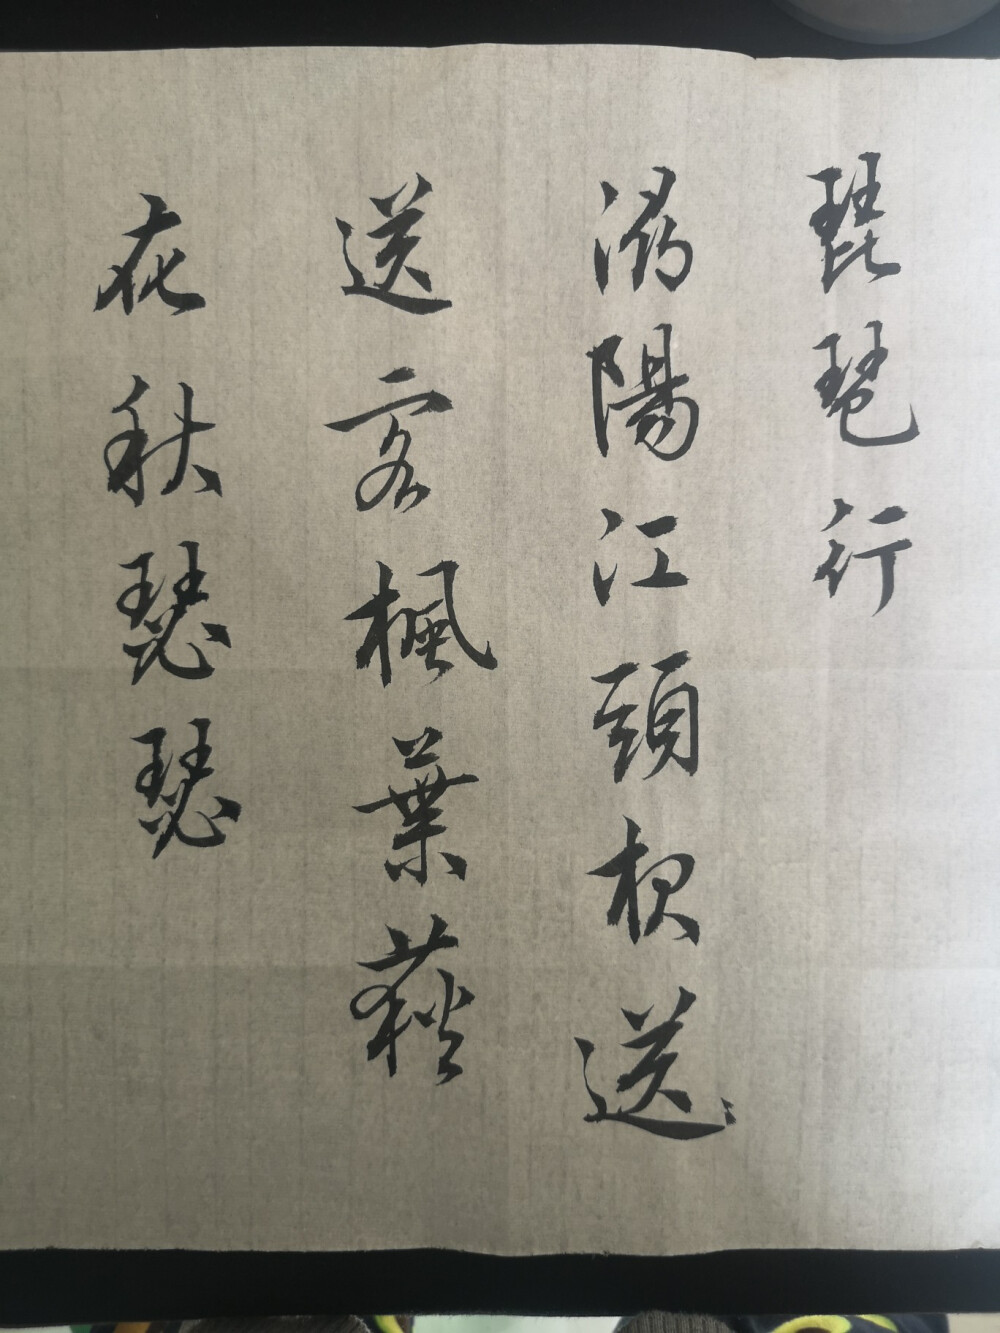 琵琶行
潯陽江頭夜送
送客楓葉荻
花秋瑟瑟